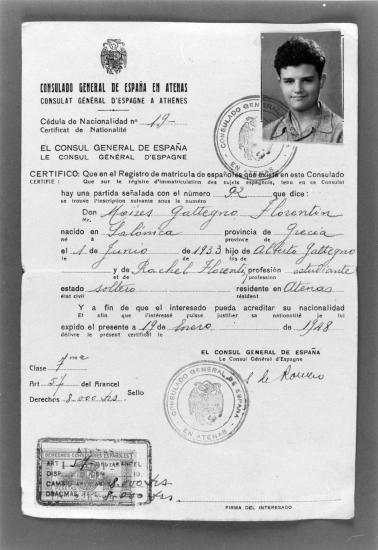 CONSULADO GENERAL DE ESPAÑA EN ATENAS
CONSULAT GÉNÉRAL D'ESPAGNE A ATHÈNES
Cédula de Nacionalidad nº 19-
Certificat de Nationalité
EL CONSUL GENERAL DE ESPAÑA
LE CONSUL GÉNÉRAL D'ESPAGNE
CERTIFICO: Que en el Registro de matrícula de españoles que existe en este Consulado
CERTIFIE: Que sur le régistre d'immatriculation des sujets espagnols, tenu en ce Consulat
hay una partida señalada con el número 92 que dice:
se trouve l'inscription suivante sous le numéro
Don Moises Gattegno Florentin
Mr.
nacido en Salónica provincia de Grecia
né a province de
el 1 de Junio de 1933 hijo de Alberto Gattegno
le de fils de
y de Rachel Florentin profesión estudiante
et de profession
estado soltero residente en Atenas
état civil résident
Y a fin de que el interesado pueda acreditar su nacionalidad
Et afin que l'intéressé puisse justifier sa nationalité je lui
expido el presente a 19 de Enero de 1948
délivre le présent certificat le
EL CONSUL GENERAL DE ESPAÑA
Le Consul Général d'Espagne
Clase 7me
Art 57 del Arancel
Sello
Dereches 8.000 frs
CONSULADO GENERAL DE ESPAÑA
EN ATENAS
CONSULADO GENERAL DE ESPAÑA
EN ATENAS
ATENAS
DERECHOS CONSULARES ESPAÑOLES
ART 57 ARANCEL
8.000 frs
DRACMAS 8.000 frs
FIRMA DEL INTERESADO